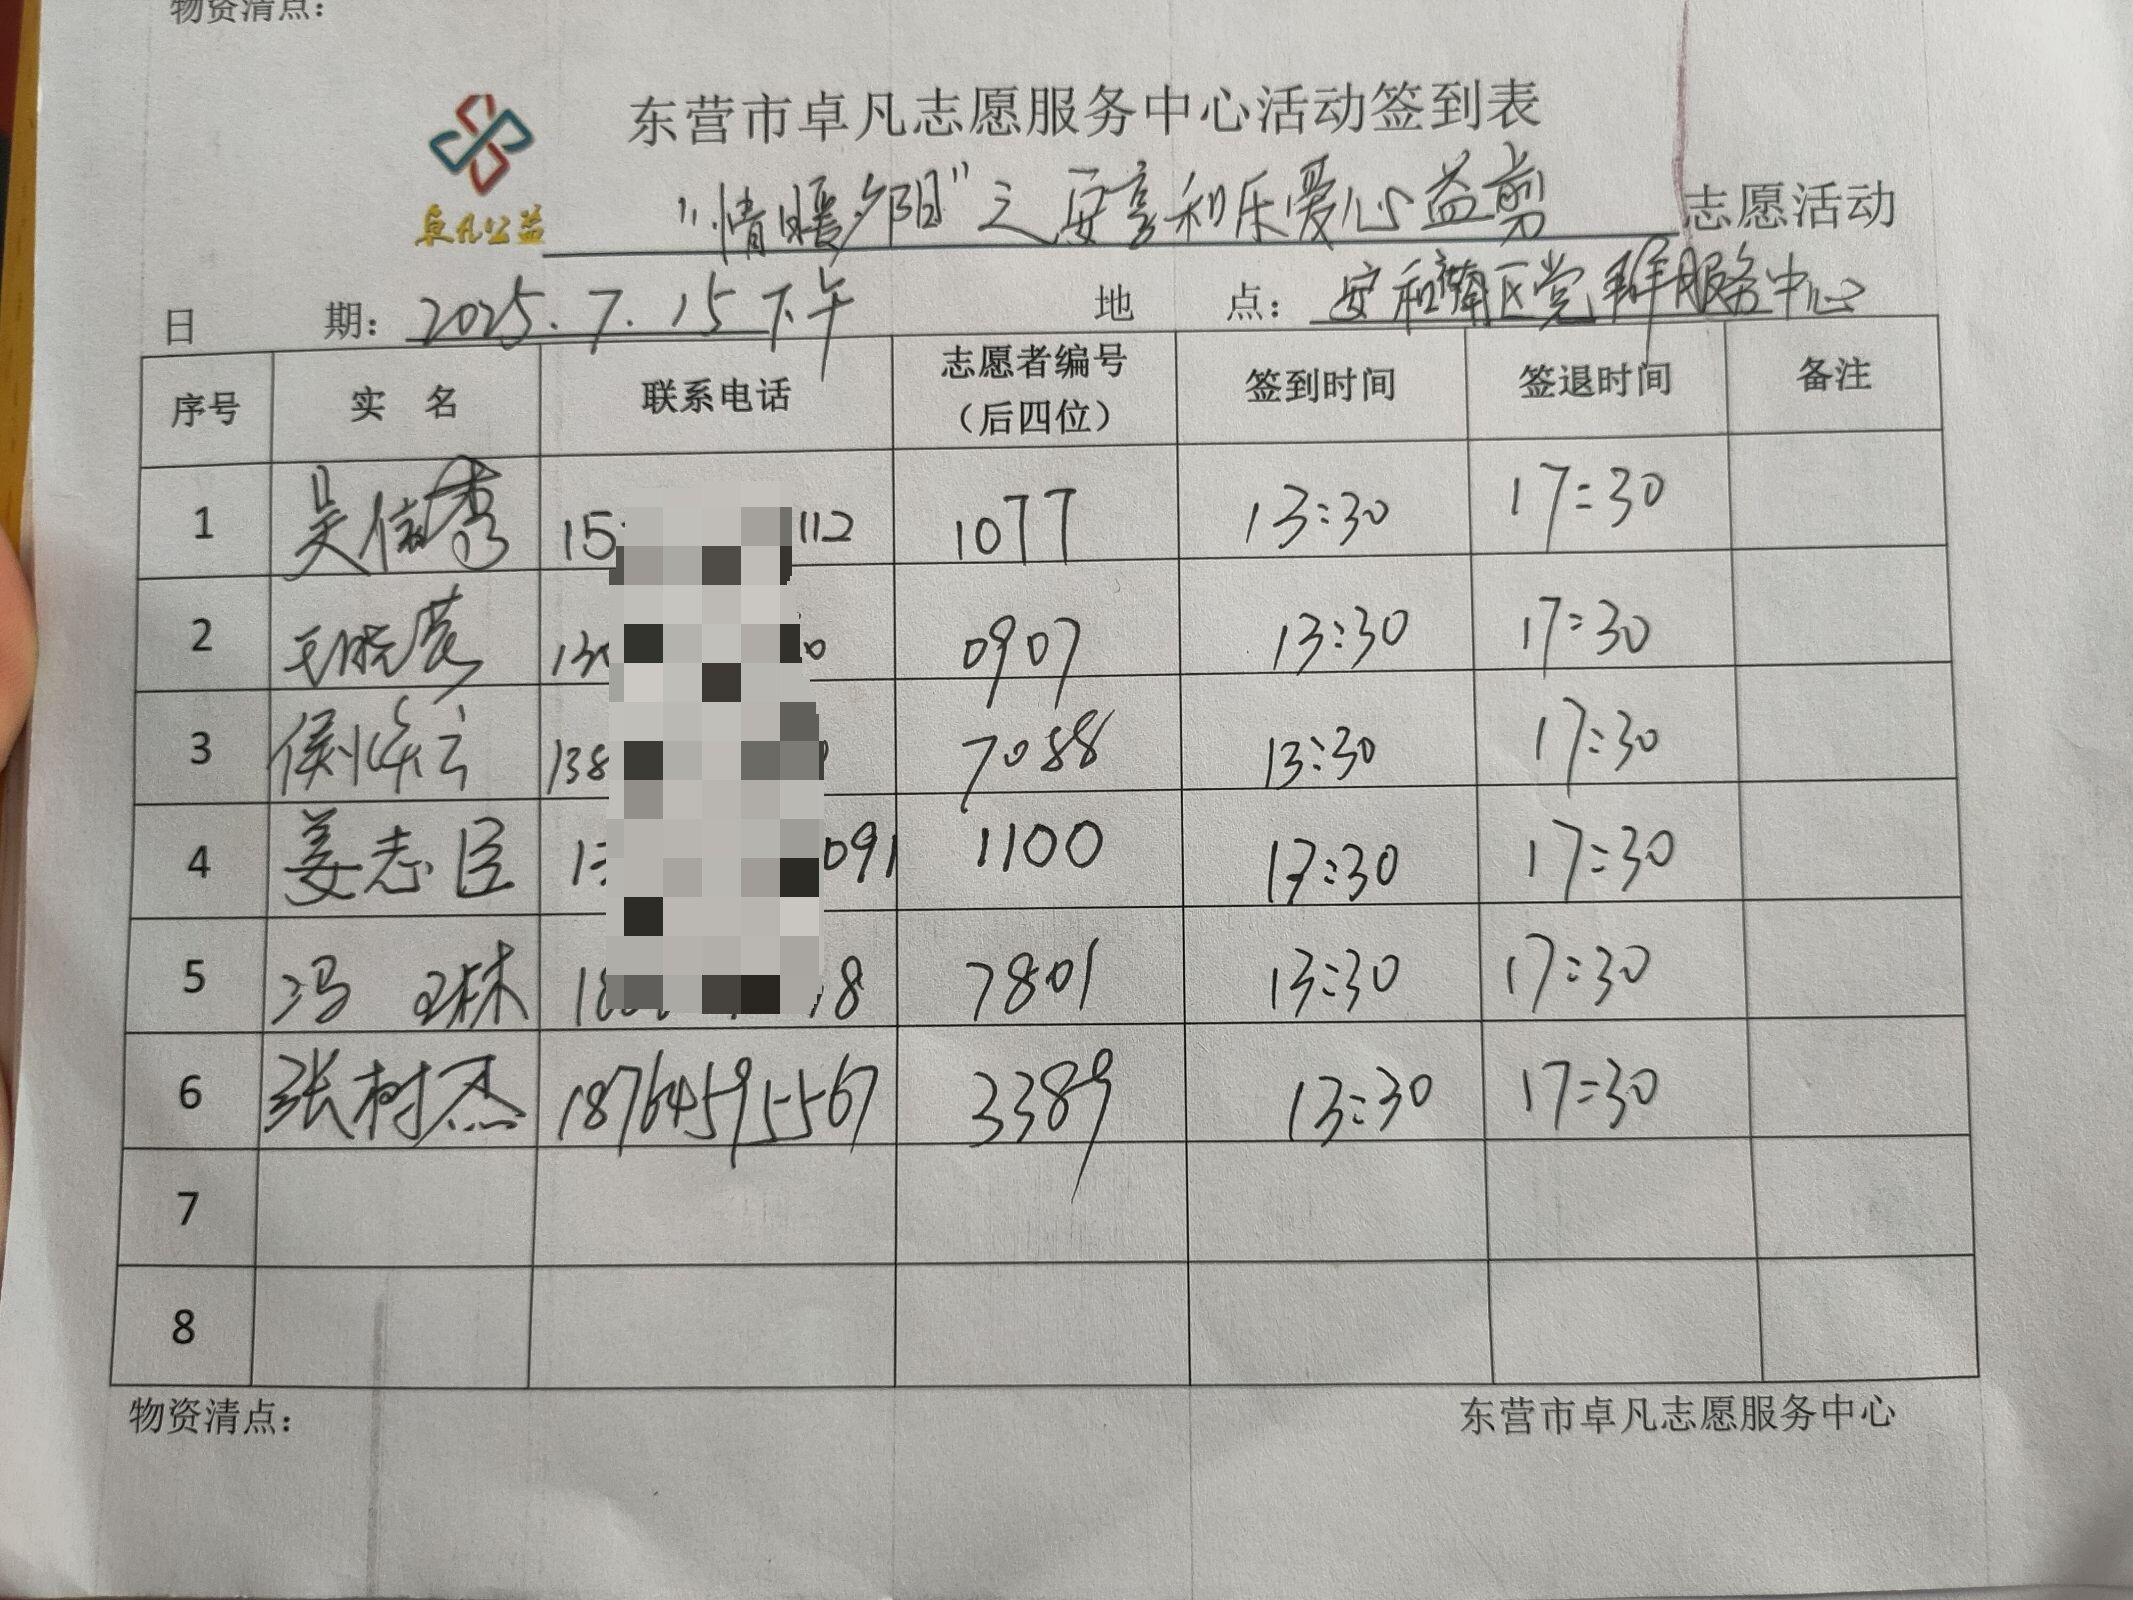 物资清点：
东营市卓凡志愿服务中心活动签到表
卓凡公益
"情暖夕阳"之安享和乐爱心益剪 志愿活动
日 期： 2025.7.15下午 地 点： 安和南区党群服务中心
序号 实 名 联系电话 志愿者编号（后四位） 签到时间 签退时间 备注
1 吴信秀 15 112 1077 13:30 17:30
2 王晓 130 0 0907 13:30 17:30
3 侯 云 138 7088 13:30 17:30
4 姜志臣 13 091 1100 13:30 17:30
5 冯 琳 18 8 7801 13:30 17:30
6 张树杰 18764595567 3389 13:30 17:30
7
8
物资清点： 东营市卓凡志愿服务中心